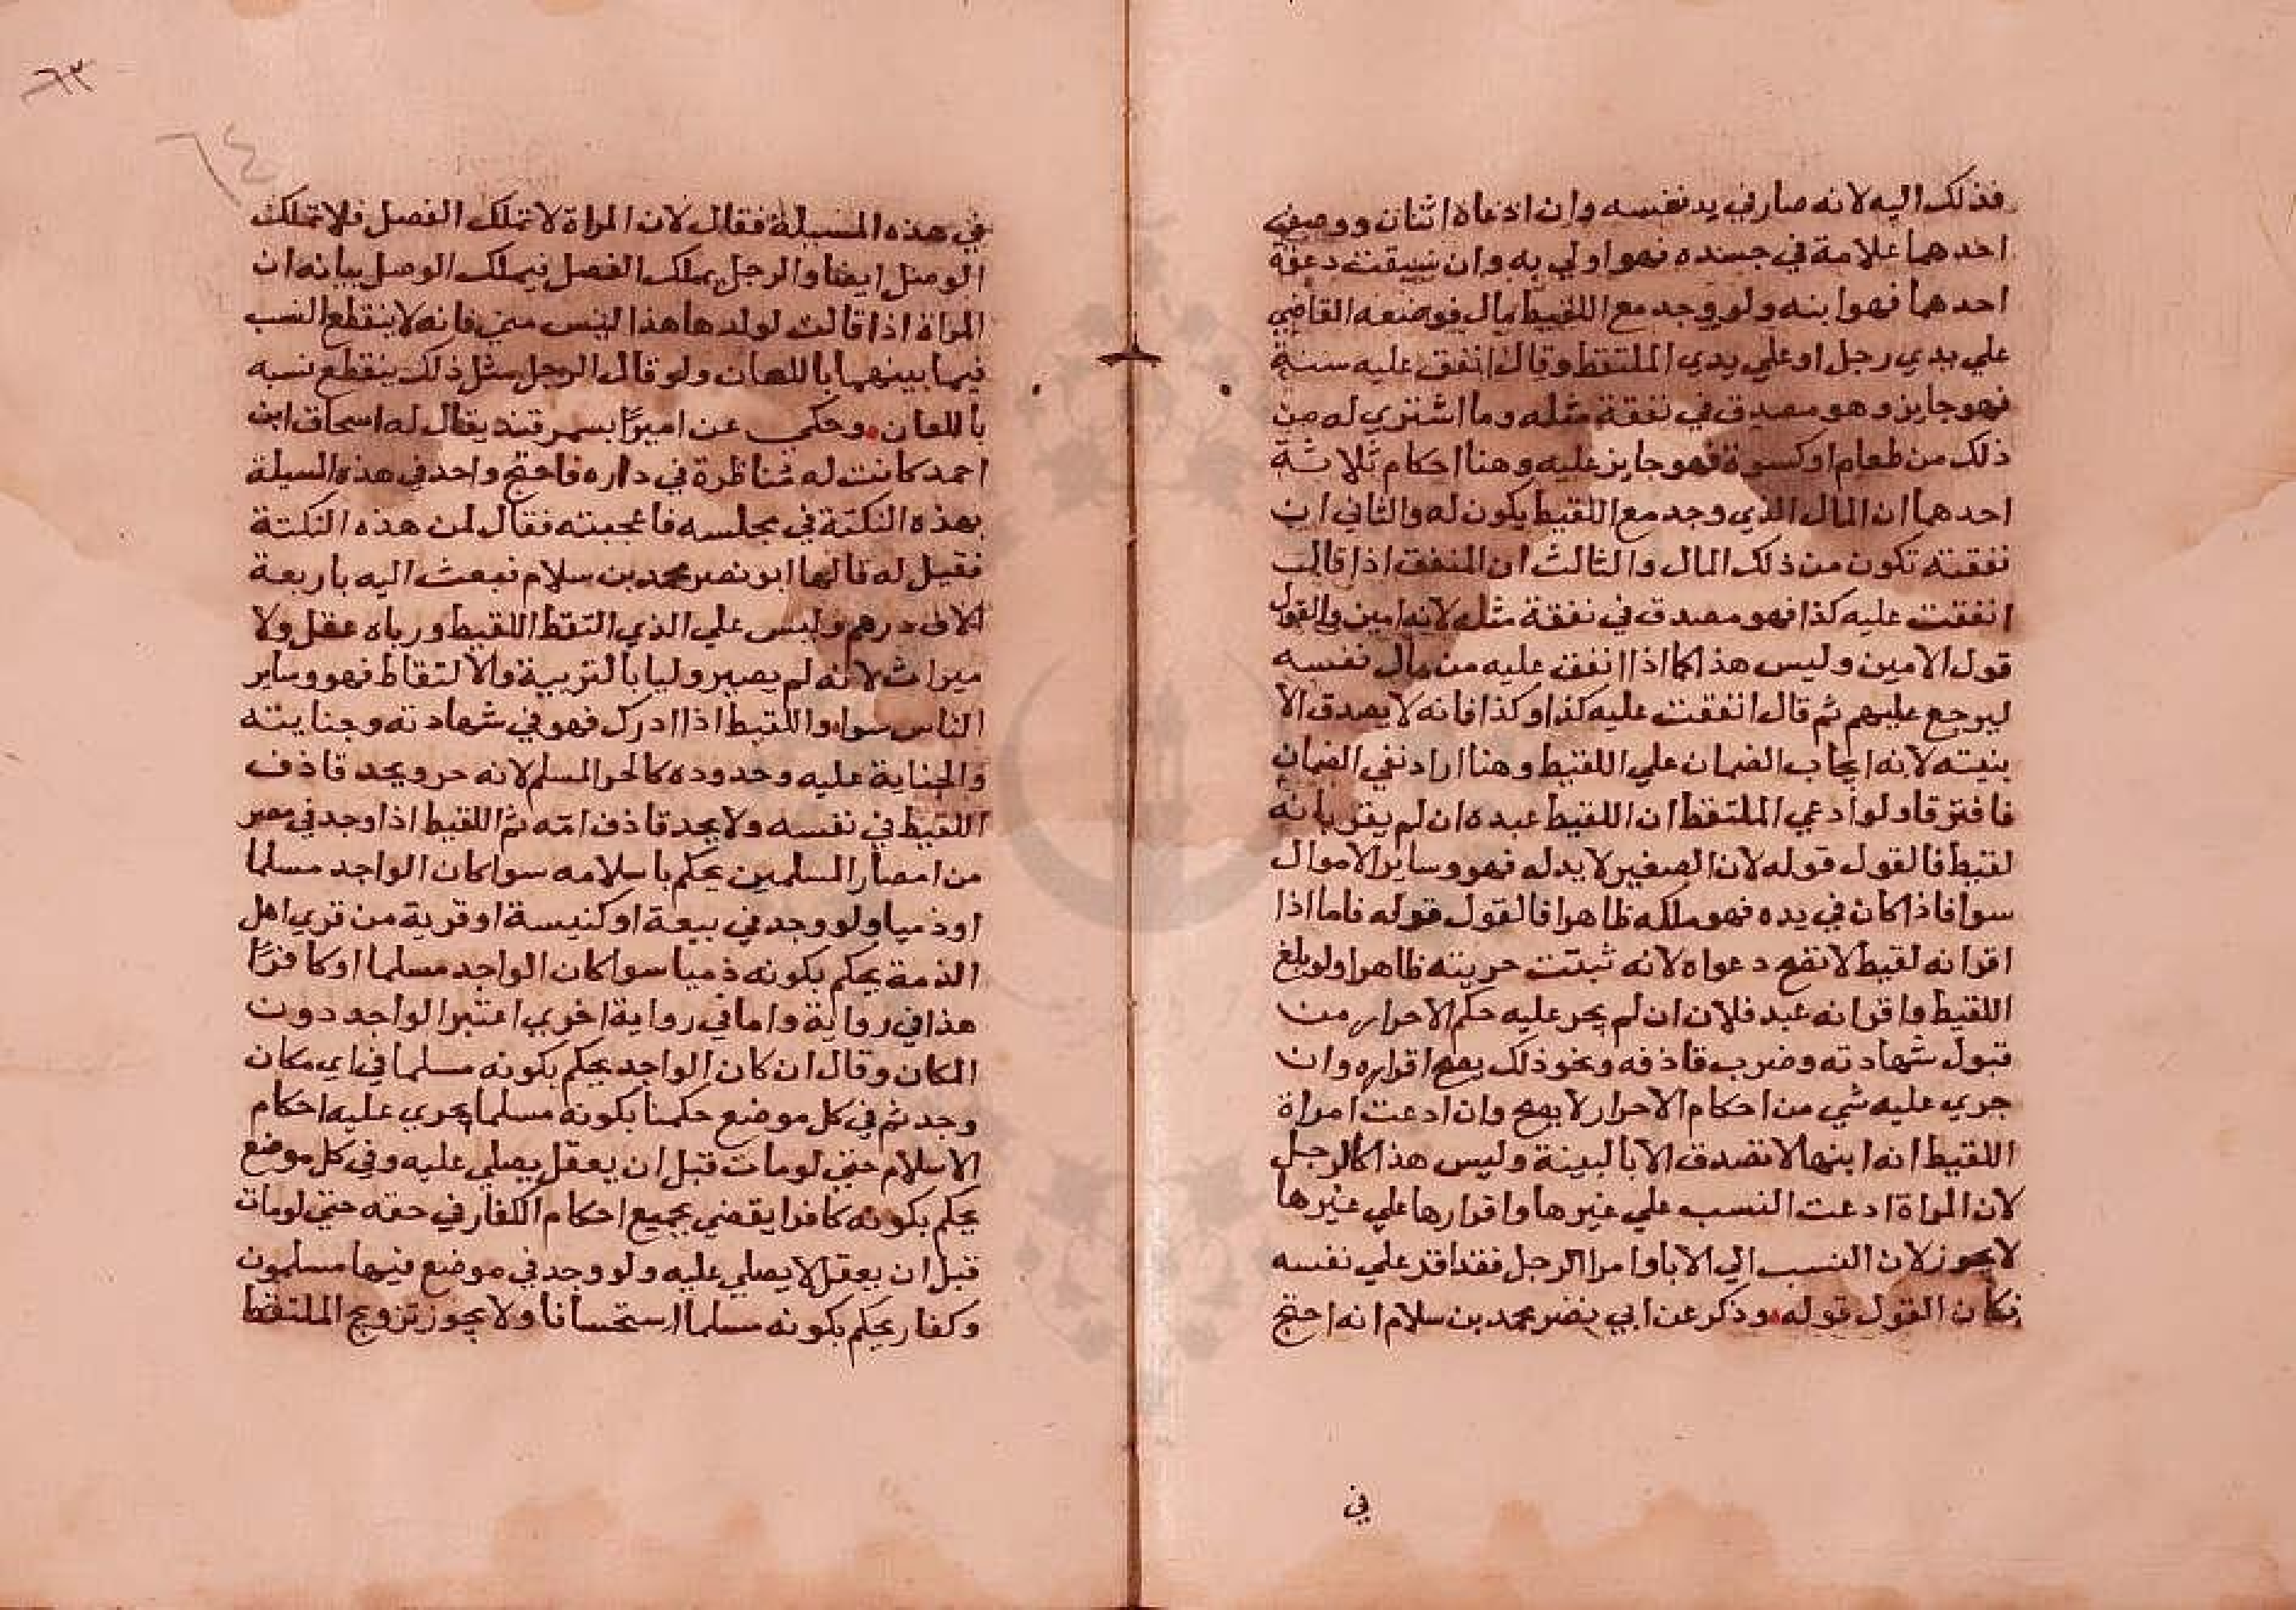 فذلك اليه لانه صار في يد نفسه وان ادعاه اثنان ووصف
احدهما علامة في جسده فهو اولي به وان سبقت دعوة
احدهما فهو ابنه ولو وجد مع اللقيط مال فوضعه القاضي
علي يدي رجل او علي يدي الملتقط وقال انفق عليه سنة
فهو جايز وهو مصدق في نفقة مثله وما اشتري له من
ذلك من طعام او كسوة فهو جايز عليه وهنا احكام ثلاثة
احدهما ان المال الذي وجد مع اللقيط يكون له والثاني ان
نفقته تكون من ذلك المال والثالث ان المنفق اذا قال
انفقت عليه كذا فهو مصدق في نفقة مثله لانه امين والقول
قول الامين وليس هذا كما اذا انفق عليه من مال نفسه
ليرجع عليهم ثم قال انفقت عليه كذا وكذا فانه لا يصدق الا
بنيته لانه ايجاب الضمان علي اللقيط وهنا اراد نفي الضمان
فافترقا ولو ادعي الملتقط ان اللقيط عبده ان لم يقر بانه
لقيط فالقول قوله لان الصغير لا يد له فهو وساير الاموال
سوا فاذا كان في يده فهو ملكه ظاهرا فالقول قوله فاما اذا
اقر انه لقيط لا تصح دعواه لانه ثبتت حريته ظاهرا ولو بلغ
اللقيط واقر انه عبد فلان ان لم يجر عليه حكم الاحرار من
قبول شهادته وضرب قاذفه ونحو ذلك يصح اقراره وان
جري عليه شي من احكام الاحرار لا يصح وان ادعت امراة
اللقيط انه ابنها لا تصدق الا بالبينة وليس هذا كالرجل
لان المراة ادعت النسب علي غيرها واقرارها علي غيرها
لا يجوز لان النسب الي الابا واما الرجل فقد اقر علي نفسه
فكان القول قوله وذكر عن ابي نصر محمد بن سلام انه احتج
في
٦٣
٦٤
في هذه المسيلة فقال لان المراة لا تملك الفصل فلا تملك
الوصل ايضا والرجل يملك الفصل فيملك الوصل بيانه ان
المراة اذا قالت لولدها هذا ليس مني فانه لا ينقطع النسب
فيما بينهما باللعان ولو قال الرجل مثل ذلك ينقطع نسبه
باللعان وحكي عن اميرًا بسمرقند يقال له اسحاق ابن
احمد كانت له مناظرة في داره فاحتج واحد في هذه المسيلة
بهذه النكتة في مجلسه فاعجبته فقال لمن هذه النكتة
فقيل له قالها ابو نصر محمد بن سلام فبعث اليه باربعة
الاف درهم وليس علي الذي التقط اللقيط ورباه عقل ولا
ميراث لانه لم يصير وليا بالتربية والالتقاط فهو وساير
الناس سوا واللقيط اذا ادرك فهو في شهادته وجنايته
والجناية عليه وحدوده كالحر المسلم لانه حر ويحد قاذف
اللقيط في نفسه ولا يحد قاذف امه ثم اللقيط اذا وجد في مصر
من امصار المسلمين يحكم باسلامه سوا كان الواجد مسلما
او ذميا ولو وجد في بيعة او كنيسة او قرية من قري اهل
الذمة يحكم بكونه ذميا سوا كان الواجد مسلما او كافرًا
هذا في رواية واما في رواية اخري اعتبر الواجد دون
المكان وقال ان كان الواجد يحكم بكونه مسلما في اي مكان
وجد ثم في كل موضع حكمنا بكونه مسلما يجري عليه احكام
الاسلام حتي لو مات قبل ان يعقل يصلي عليه وفي كل موضع
يحكم بكونه كافرا يقضي بجميع احكام الكفار في حقه حتي لو مات
قبل ان يعقل لا يصلي عليه ولو وجد في موضع فيها مسلمون
وكفار يحكم بكونه مسلما استحسانا ولا يجوز تزويج الملتقط